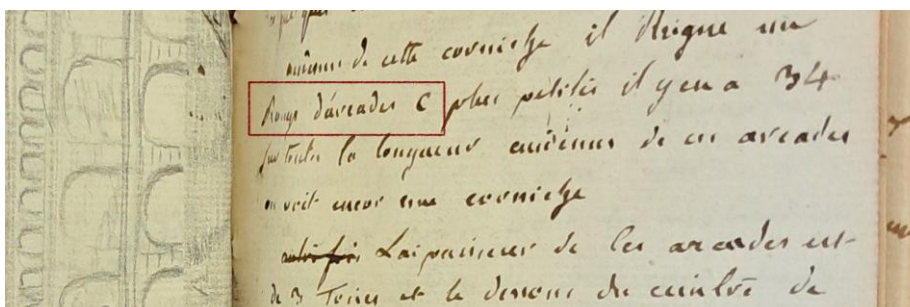 audessus de cette corniche il Reigne une
Rangs d'arcades C plus petites il y en a 34
sur toute la longueur audessus de ces arcades
on voit encor une corniche
autre fois Laipaisseur de Ces arcades est
de 3 Toises et le dessous du ceintre de